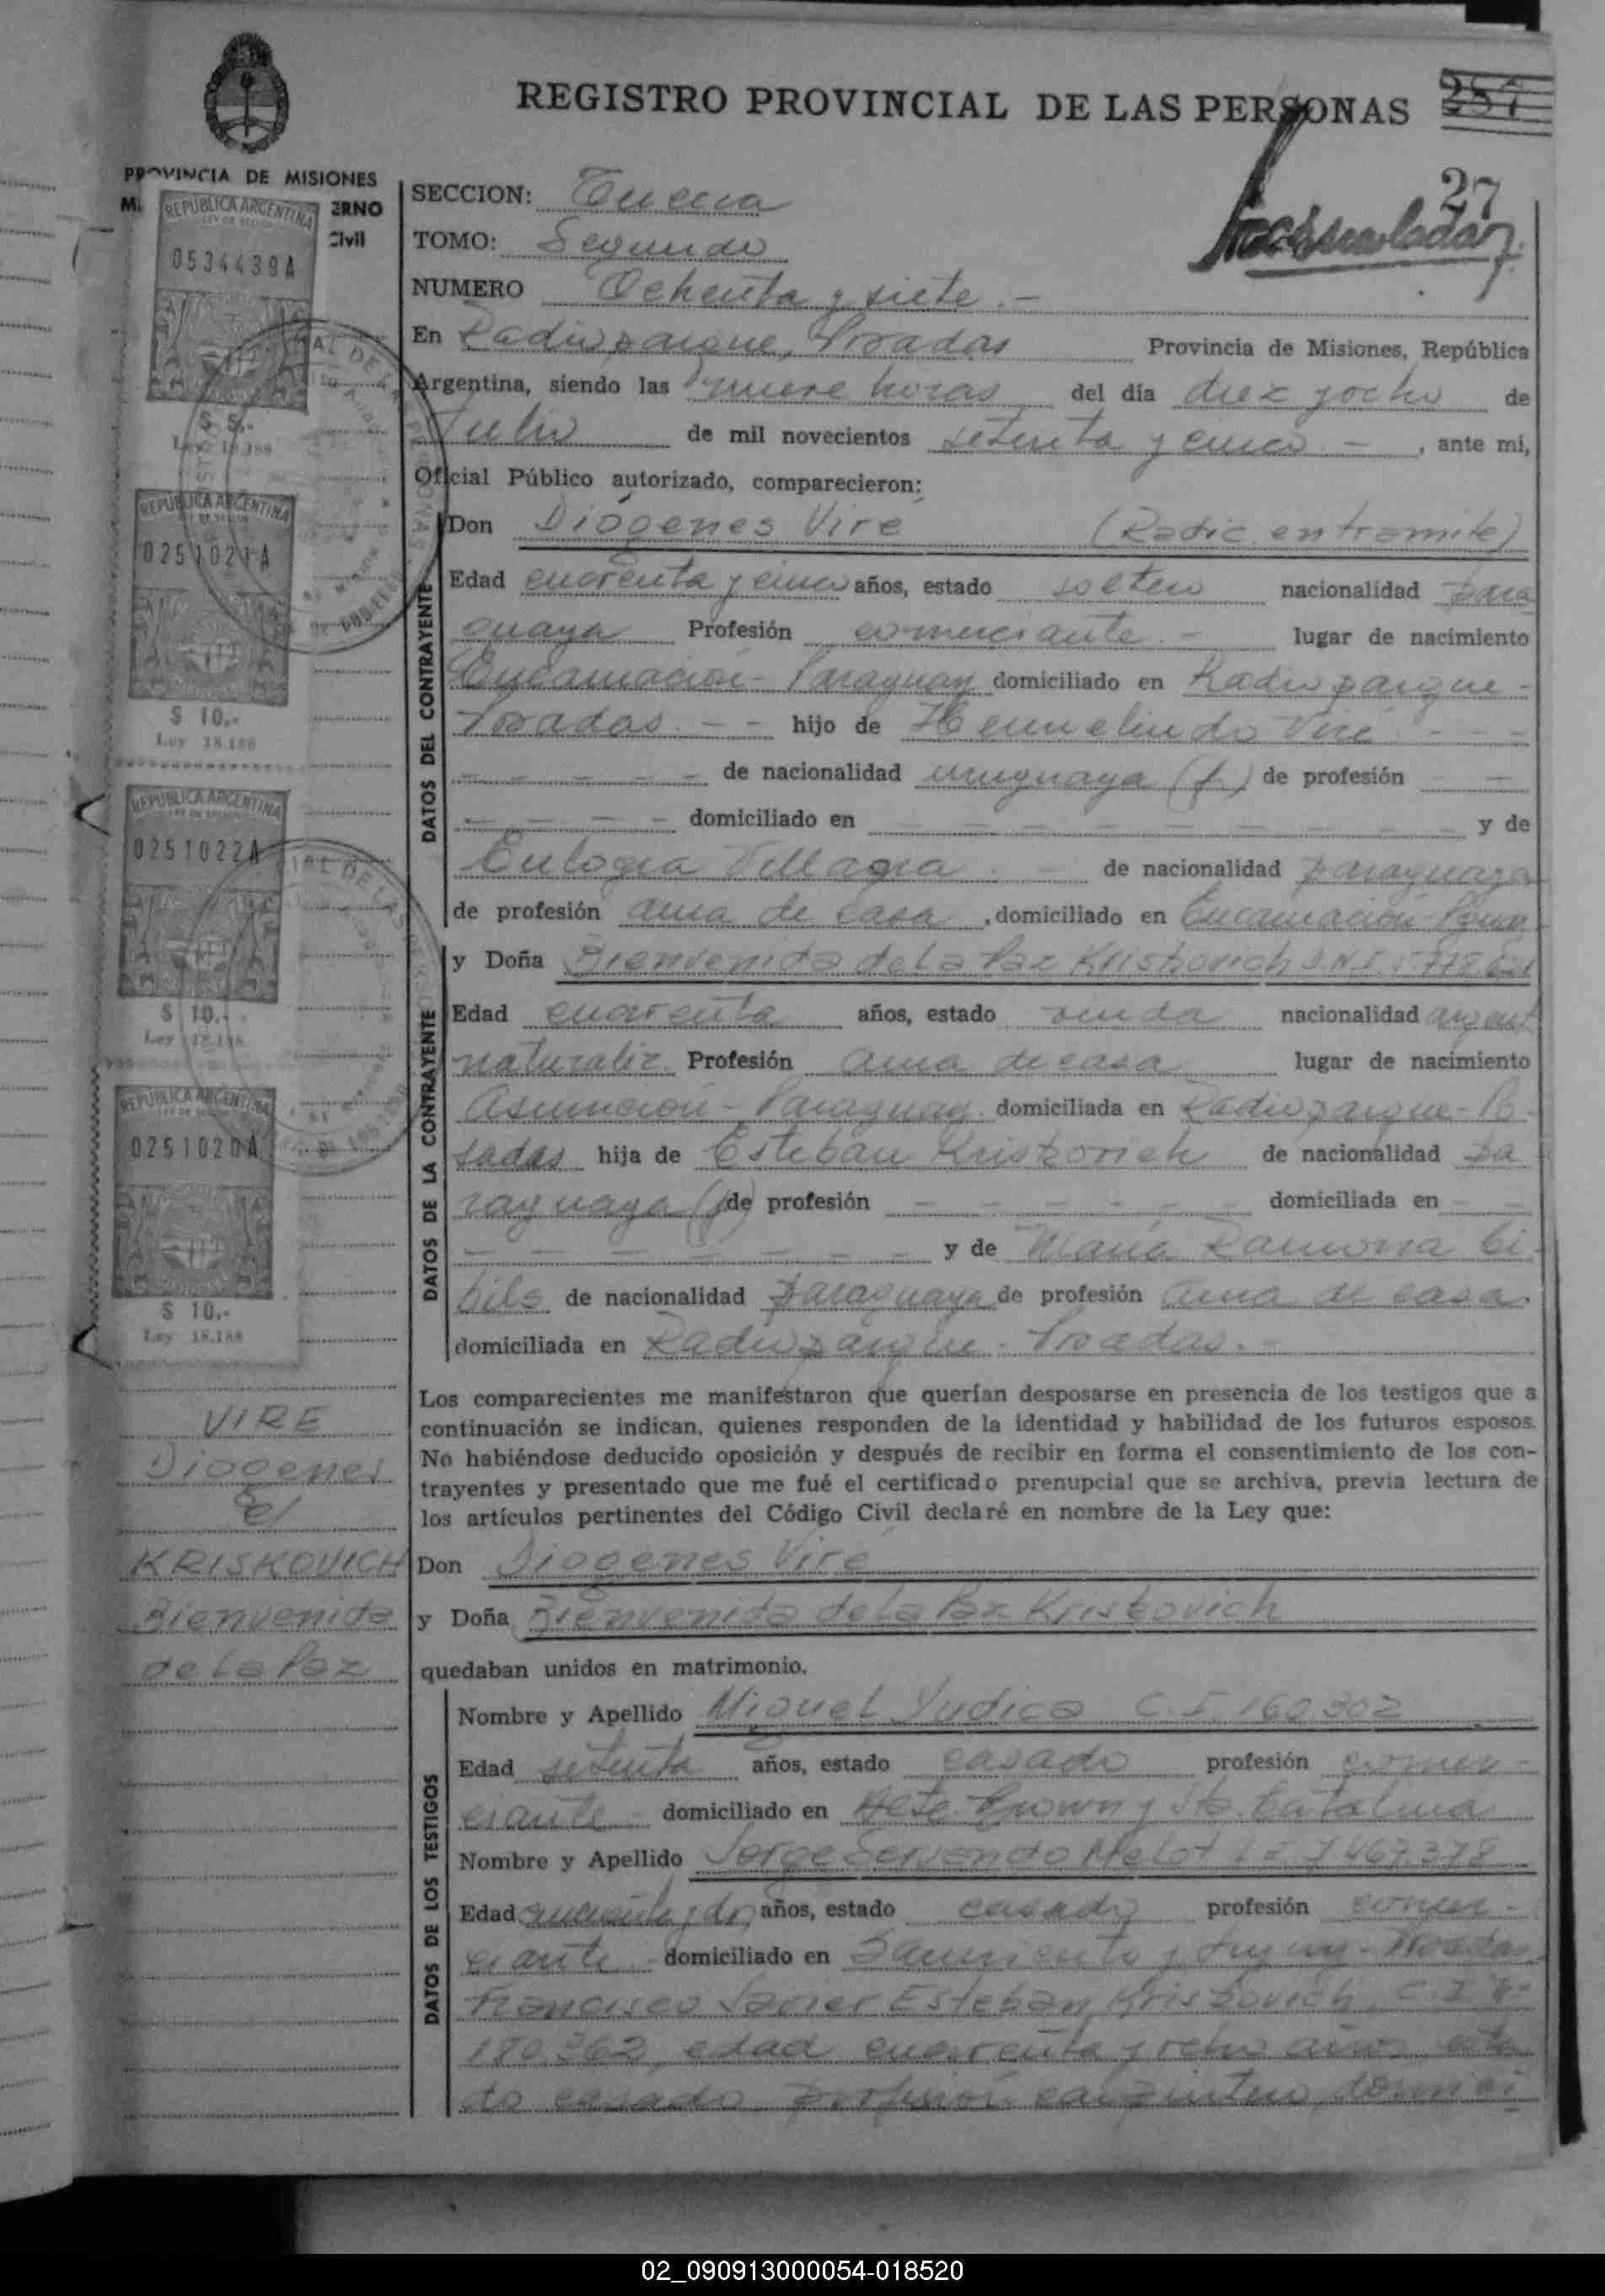 REGISTRO PROVINCIAL DE LAS PERSONAS 287
27
PROVINCIA DE MISIONES
ERNO
Civil
SECCION: Tercera
TOMO: Segundo
NUMERO Ochenta y siete. -
En Radioparque, Posadas Provincia de Misiones, República
Argentina, siendo las nueve horas del día diez y ocho de
Julio de mil novecientos setenta y cinco - , ante mi,
Oficial Público autorizado, comparecieron:
DATOS DEL CONTRAYENTE
Don Diógenes Viré (Radic. en tramite)
Edad cuarenta y cinco años, estado soltero nacionalidad para
guaya Profesión comerciante. - lugar de nacimiento
Encarnación - Paraguay domiciliado en Radioparque -
Posadas. - - hijo de Hermelindo Viré - - -
- - - - - - de nacionalidad uruguaya (f) de profesión -
- - - - domiciliado en - - - - - - - y de
Eulogia Villagra . - de nacionalidad paraguaya
de profesión ama de casa , domiciliado en Encarnación -
DATOS DE LA CONTRAYENTE
y Doña Bienvenida de La Paz Kriskovich
Edad cuarenta años, estado viuda nacionalidad argent
naturaliz. Profesión ama de casa lugar de nacimiento
Asunción - Paraguay. domiciliada en Radioparque - Po
sadas hija de Esteban Kriskovich de nacionalidad pa
raguaya (f) de profesión - - - - - domiciliada en - -
- - - - - - - y de María Ramona Bi
bils de nacionalidad paraguaya de profesión ama de casa.
domiciliada en Radioparque - Posadas. -
Los comparecientes me manifestaron que querían desposarse en presencia de los testigos que a
continuación se indican, quienes responden de la identidad y habilidad de los futuros esposos.
No habiéndose deducido oposición y después de recibir en forma el consentimiento de los con-
trayentes y presentado que me fué el certificado prenupcial que se archiva, previa lectura de
los artículos pertinentes del Código Civil declaré en nombre de la Ley que:
Don Diogenes Viré
y Doña Bienvenida de La Paz Kriskovich
quedaban unidos en matrimonio.
DATOS DE LOS TESTIGOS
Nombre y Apellido Miguel Yudica C.I. 160.302
Edad setenta años, estado casado profesión comer-
ciante - domiciliado en Alte. Brown y Sta. Catalina
Nombre y Apellido Jorge Servando Melot L E 7.467.378
Edad cincuenta y dos años, estado casado profesión comer-
ciante - domiciliado en Sarmiento y Jujuy - Posadas.
Francisco Javier Esteban Kriskovich, C.I. Nº
180.362, edad cuarenta y ocho años, esta
do casado, profesión carpintero, domici
REPUBLICA ARGENTINA
LEY DE SELLOS
0534439A
$ 5.-
Ley 18.188
REPUBLICA ARGENTINA
0251021A
$ 10.-
Ley 18.188
REPUBLICA ARGENTINA
0251022A
$ 10.-
Ley 18.188
REPUBLICA ARGENTINA
0251020A
$ 10.-
Ley 18.188
VIRE
Diogenes
c/
KRISKOVICH
Bienvenida
de La Paz
02_090913000054-018520